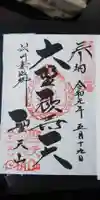 奉納
令和元年 五月十九日
大聖歓喜天
武州妻沼郷
聖天山